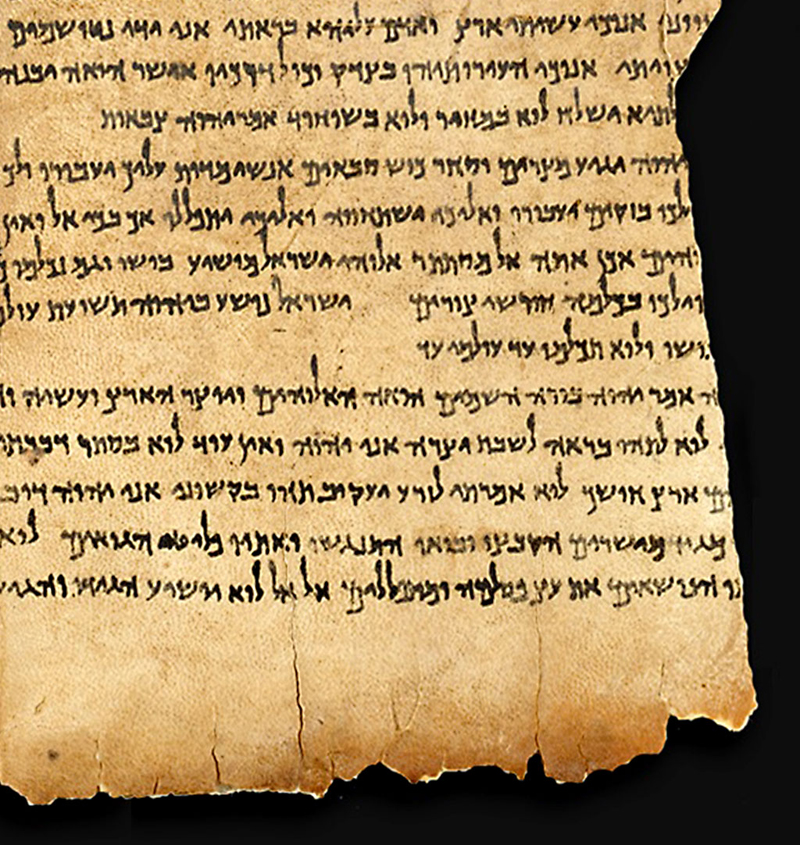 אנוכי עשיתי ארץ ואדם עליהא בראתי אני ידי נטו שמים
אנוכי העירותיהו בצדק וכול דרכיו אישר הואה יבנה
ישלח לוא במחיר ולוא בשוחוד אמר יהוה צבאות
יהוה יגיע מצרים וסחר כוש סבאים אנשי מדות עליך יעבורו ולך
ילכו בזקים יעבורו ואליך ישתחוו ואליך יתפללו אך בכי אל ואין
אכן אתה אל מסתתר אלוהי ישראל מושיע בושו וגם נכלמו
ילכו בכלמה חרשי צורים ישראל נושע ביהוה תשועת
ולוא תכלמו עד עולמי עד
אמר יהוה בורה השמים הואה האלוהים ויוצר הארץ ועושיה
לוא לתהו בראה לשבת יצרה אני יהוה ואין עוד לוא בסתר דברתי
ארץ חושך לוא אמרתי לזרע יעקוב תוהו בקשוני אני יהוה
מגיד מישרים הקבצו ובואו התנגשו ואתיו פליטי הגואים לוא
את עץ פסלמה ומתפללים אל אל לוא יושיע הגידו